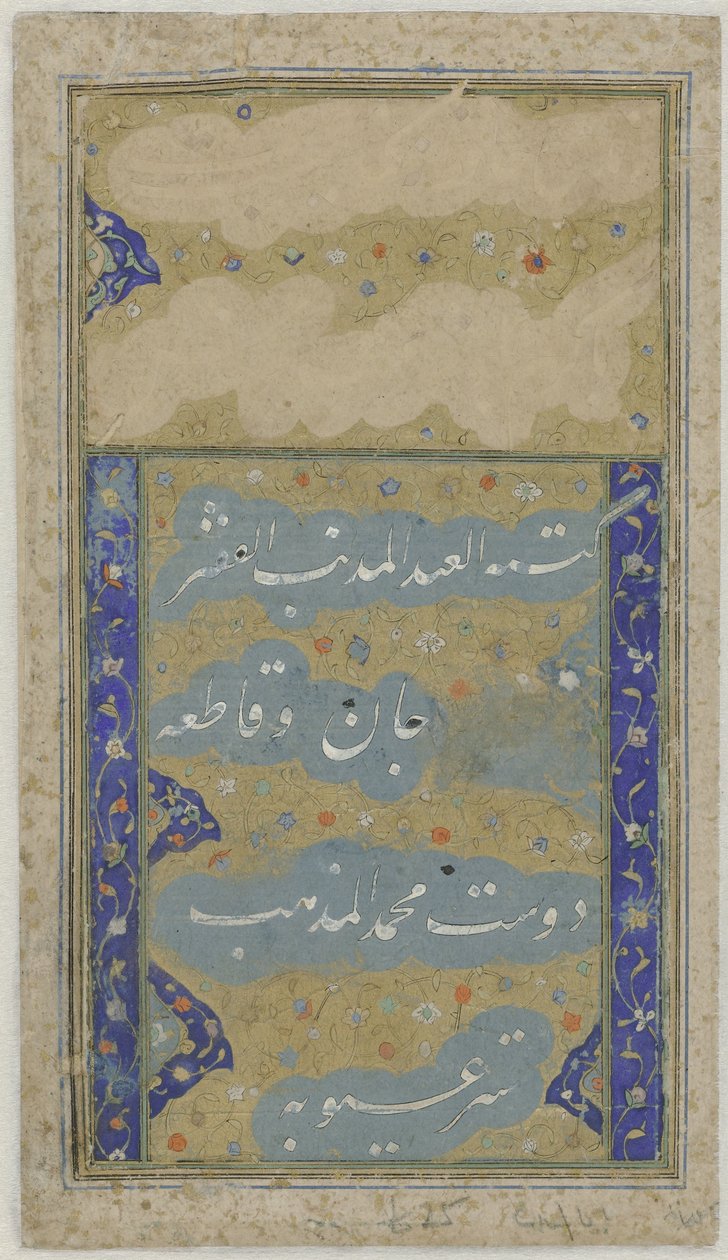 کتبه العبد المذنب الفقیر
جان وقاطعه
دوست محمد المذهب
ستر عیوبه